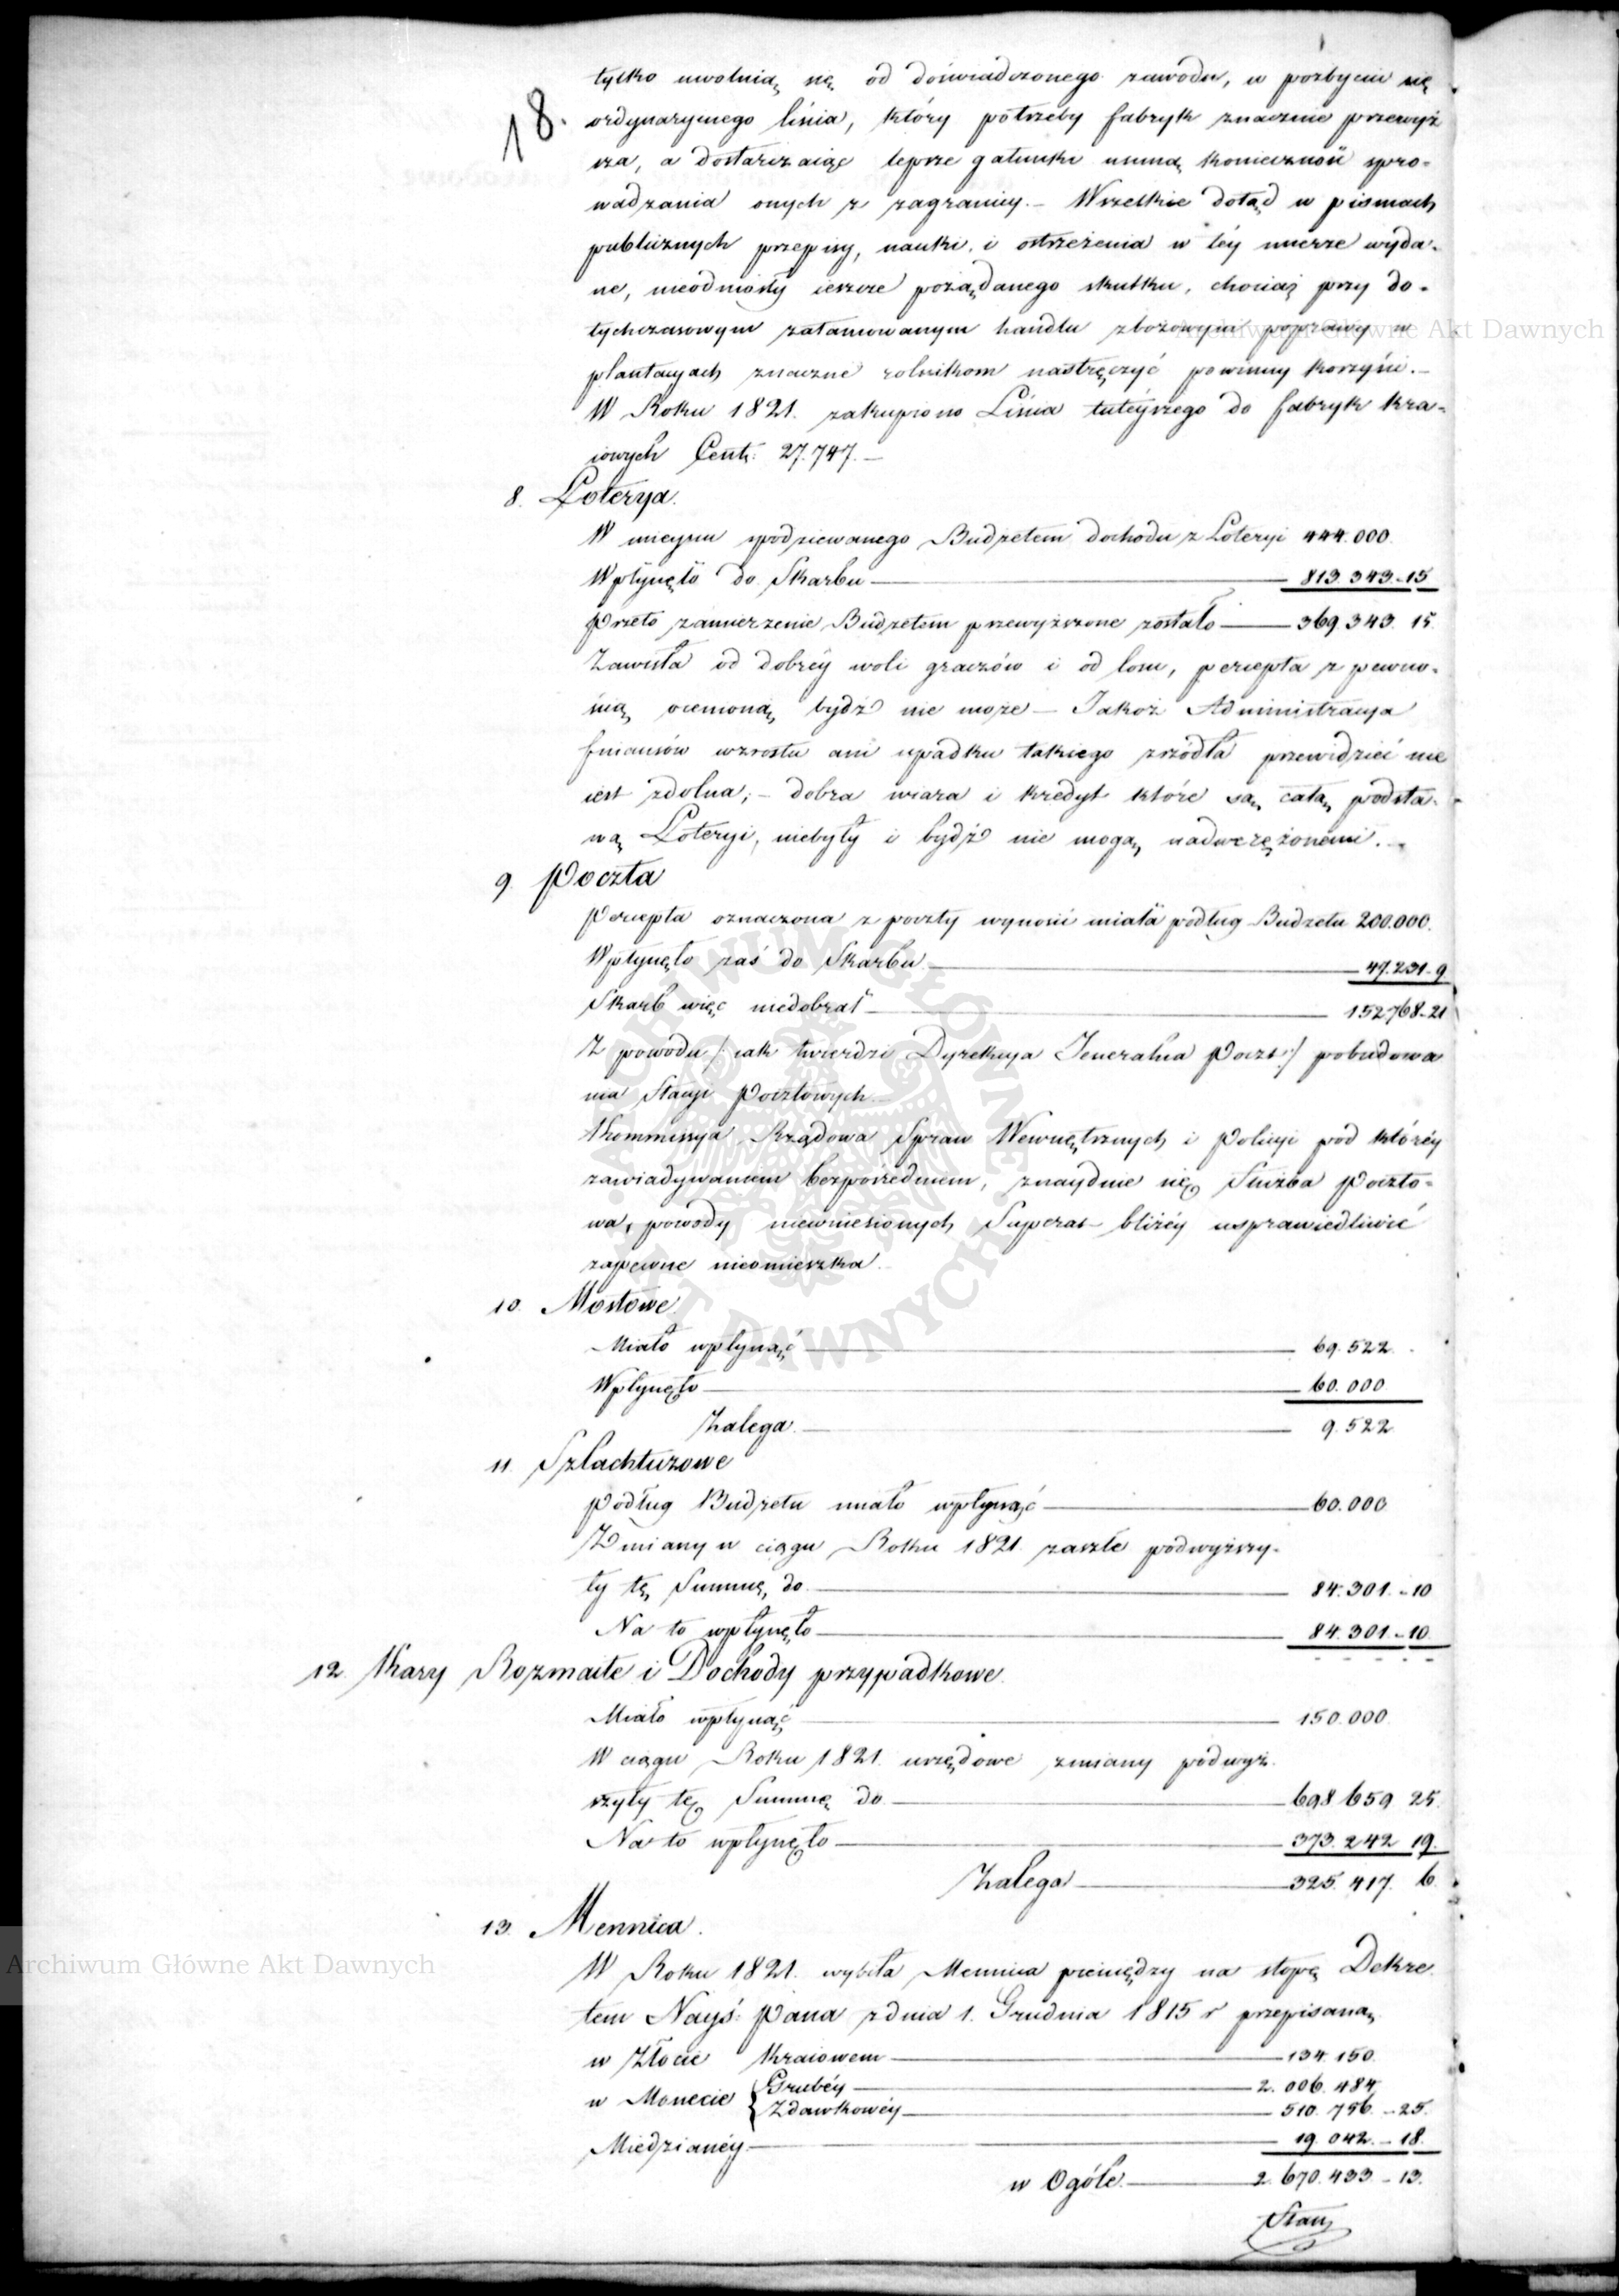 18.
tylko uwolnią się od doświadczonego zawodu, w pozbyciu się
ordynaryinego liścia, który potrzeby fabryk znacznie przewyż
sza, a dostarczaiąc lepsze gatunki usuną konieczność spro-
wadzania onych z zagranicy. – Wszelkie dotąd w pismach
publicznych przepisy, nauki, i ostrzeżenia w téy mierze wyda-
ne, nieodniosły ieszcze pożądanego skutku, chociaż przy do-
tychczasowym zatamowanym handlu zbożowym poprawy w
plantacyach znaczne rolnikom nastręczyć powinny korzyści. –
W Roku 1821. zakupiono Liścia tuteyszego do fabryk kra-
iowych Cent: 27.747. –
8. Loterya.
W mieyscu spodziewanego Budżetem dochodu z Loteryi 444.000.
Wpłynęło do Skarbu 813.343.-15
Przeto zamierzenie Budżetem przewyższone zostało 369.343. 15.
Zawisła od dobréy woli graczów i od losu, percepta z pewno-
ścią ocenioną bydź nie może – Jakoż Administracya
finansów wzrostu ani upadku takiego zrzódła przewidzieć nie
iest zdolna; – dobra wiara i kredyt które są całą podsta-
wą Loteryi, niebyły i bydź nie mogą nadwerężonemi. –
9. Poczta
Percepta oznaczona z poczty wynosić miała podług Budżetu 200.000.
Wpłynęło zaś do Skarbu 47.231-9
Skarb więc niedobrał 152.768.-21
Z powodu /: iak twierdzi Dyrekcya Jeneralna Poczt :/ pobudowa
nia Stacyi Pocztowych. –
Kommissya Rządowa Spraw Wewnętrznych i Policyi pod któréy
zawiadywaniem bezpośredniem, znayduie się Służba Poczto-
wa, powody niewniesionych Superat bliżéy usprawiedliwić
zapewne nieomieszka.
10. Mostowe.
Miało wpłynąć 69.522.
Wpłynęło 60.000
Zalega 9.522
11. Szlachtuzowe
podług Budżetu miało wpłynąć 60.000
Zmiany w ciągu Roku 1821. zaszłe podwyższy-
ły tę Summę do 84.301.-10
Na to wpłynęło 84.301.-10.
12. Kary Rozmaite i Dochody przypadkowe.
Miało wpłynąć 150.000.
W ciągu Roku 1821. urzędowe zmiany podwyż-
szyły tę Summę do 698.659 25.
Na to wpłynęło 373.242 19.
Zalega 325.417. 6
13. Mennica.
W Roku 1821. wybiła Mennica pieniędzy na stopę Dekre
tem Nayś: Pana z dnia 1. Grudnia 1815 r przepisaną
w Złocie Kraiowem 134.150.
w Monecie { Grubéy 2.006.484
Zdawkowéy 510.756.-25.
Miedzianéy 19.042.-18.
w Ogóle 2.670.433-13.
Stan
Archiwum Główne Akt Dawnych
Archiwum Główne Akt Dawnych
ARCHIWUM GŁÓWNE AKT DAWNYCH